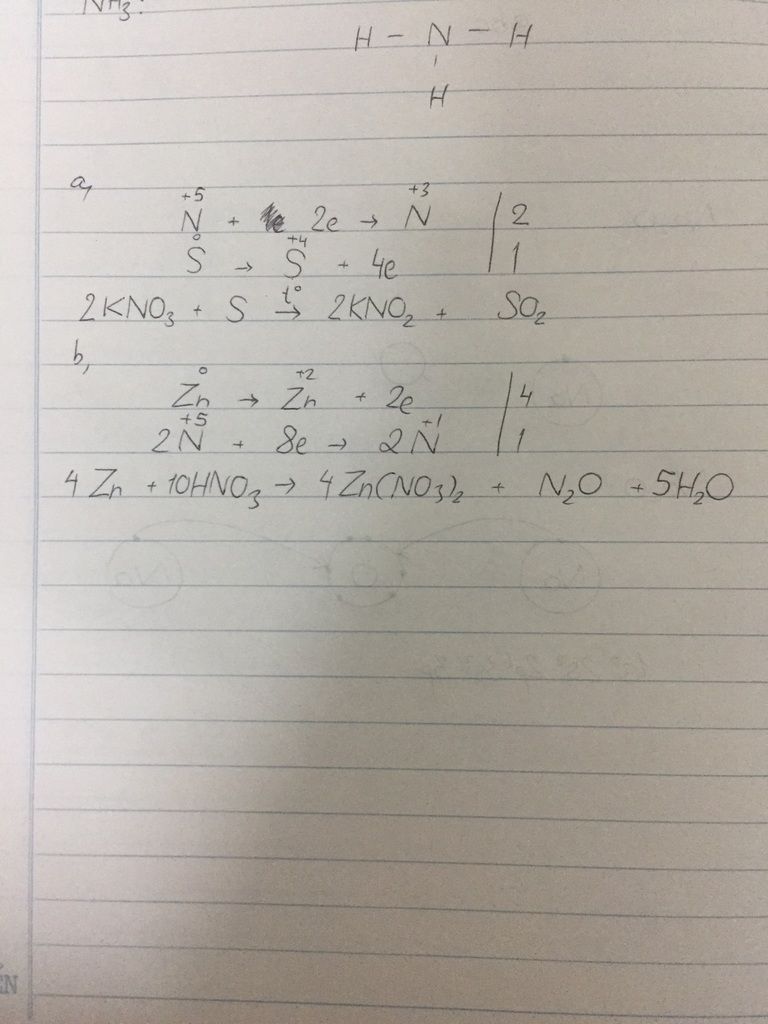 NH₃:
H – N – H
H
a,
+5 +3
N + 2e → N | 2
0 +4
S → S + 4e | 1
2KNO₃ + S t° → 2KNO₂ + SO₂
b,
0 +2
Zn → Zn + 2e | 4
+5 +1
2N + 8e → 2N | 1
4Zn + 10HNO₃ → 4Zn(NO₃)₂ + N₂O + 5H₂O